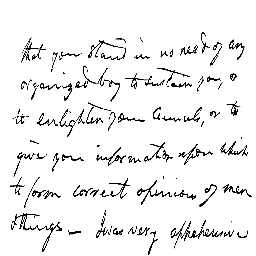 that you stand in no need of any
organized body to sustain you, or
to enlighten your Councils, or to
give you information upon which
to form correct opinions of men
& things — I was very apprehensive